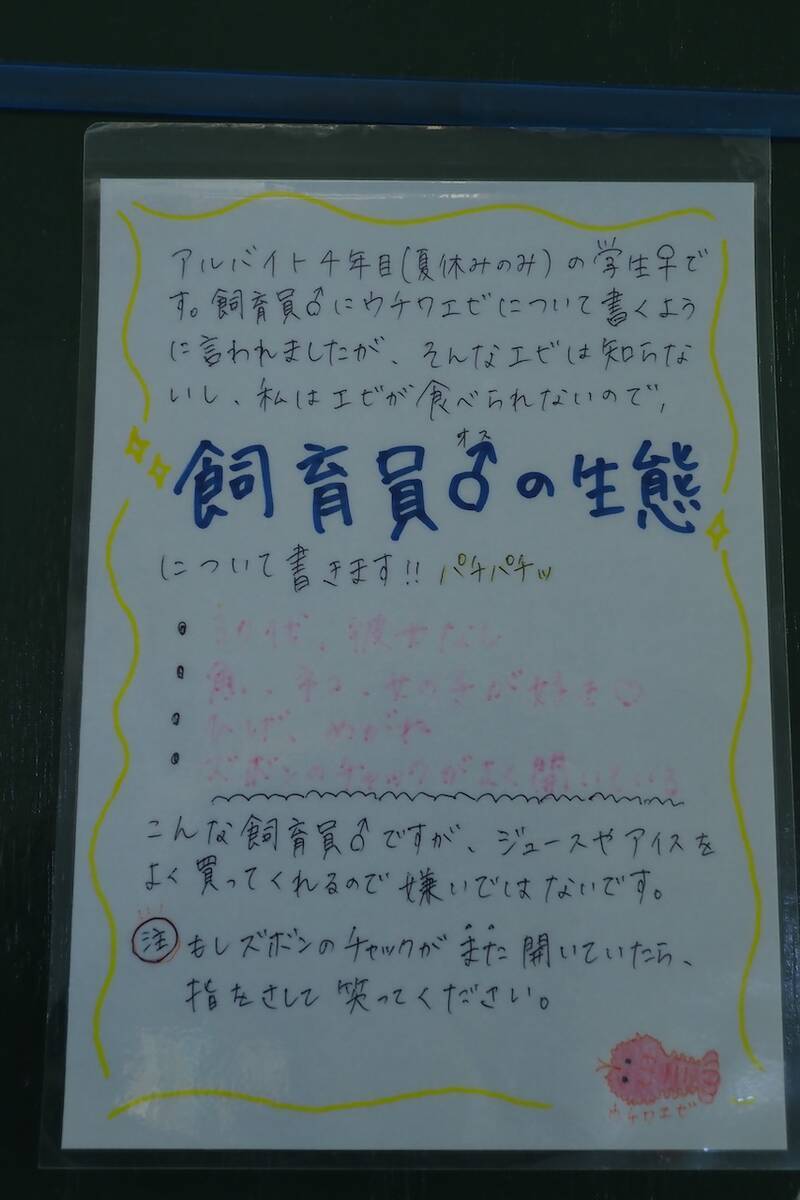 アルバイト4年目(夏休みのみ)の学生♀で
す。飼育員♂にウチワエビについて書くよう
に言われましたが、そんなエビは知らな
いし、私はエビが食べられないので、
オス
飼育員♂の生態
について書きます!! パチパチッ
・ 、彼女なし
・魚、ネコ、女の子が好き♡
・ひげ、めがね
・ズボンのチャックがよく開いている
こんな飼育員♂ですが、ジュースやアイスを
よく買ってくれるので嫌いではないです。
注 もしズボンのチャックがまた開いていたら、
指をさして笑ってください。
ウチワエビ